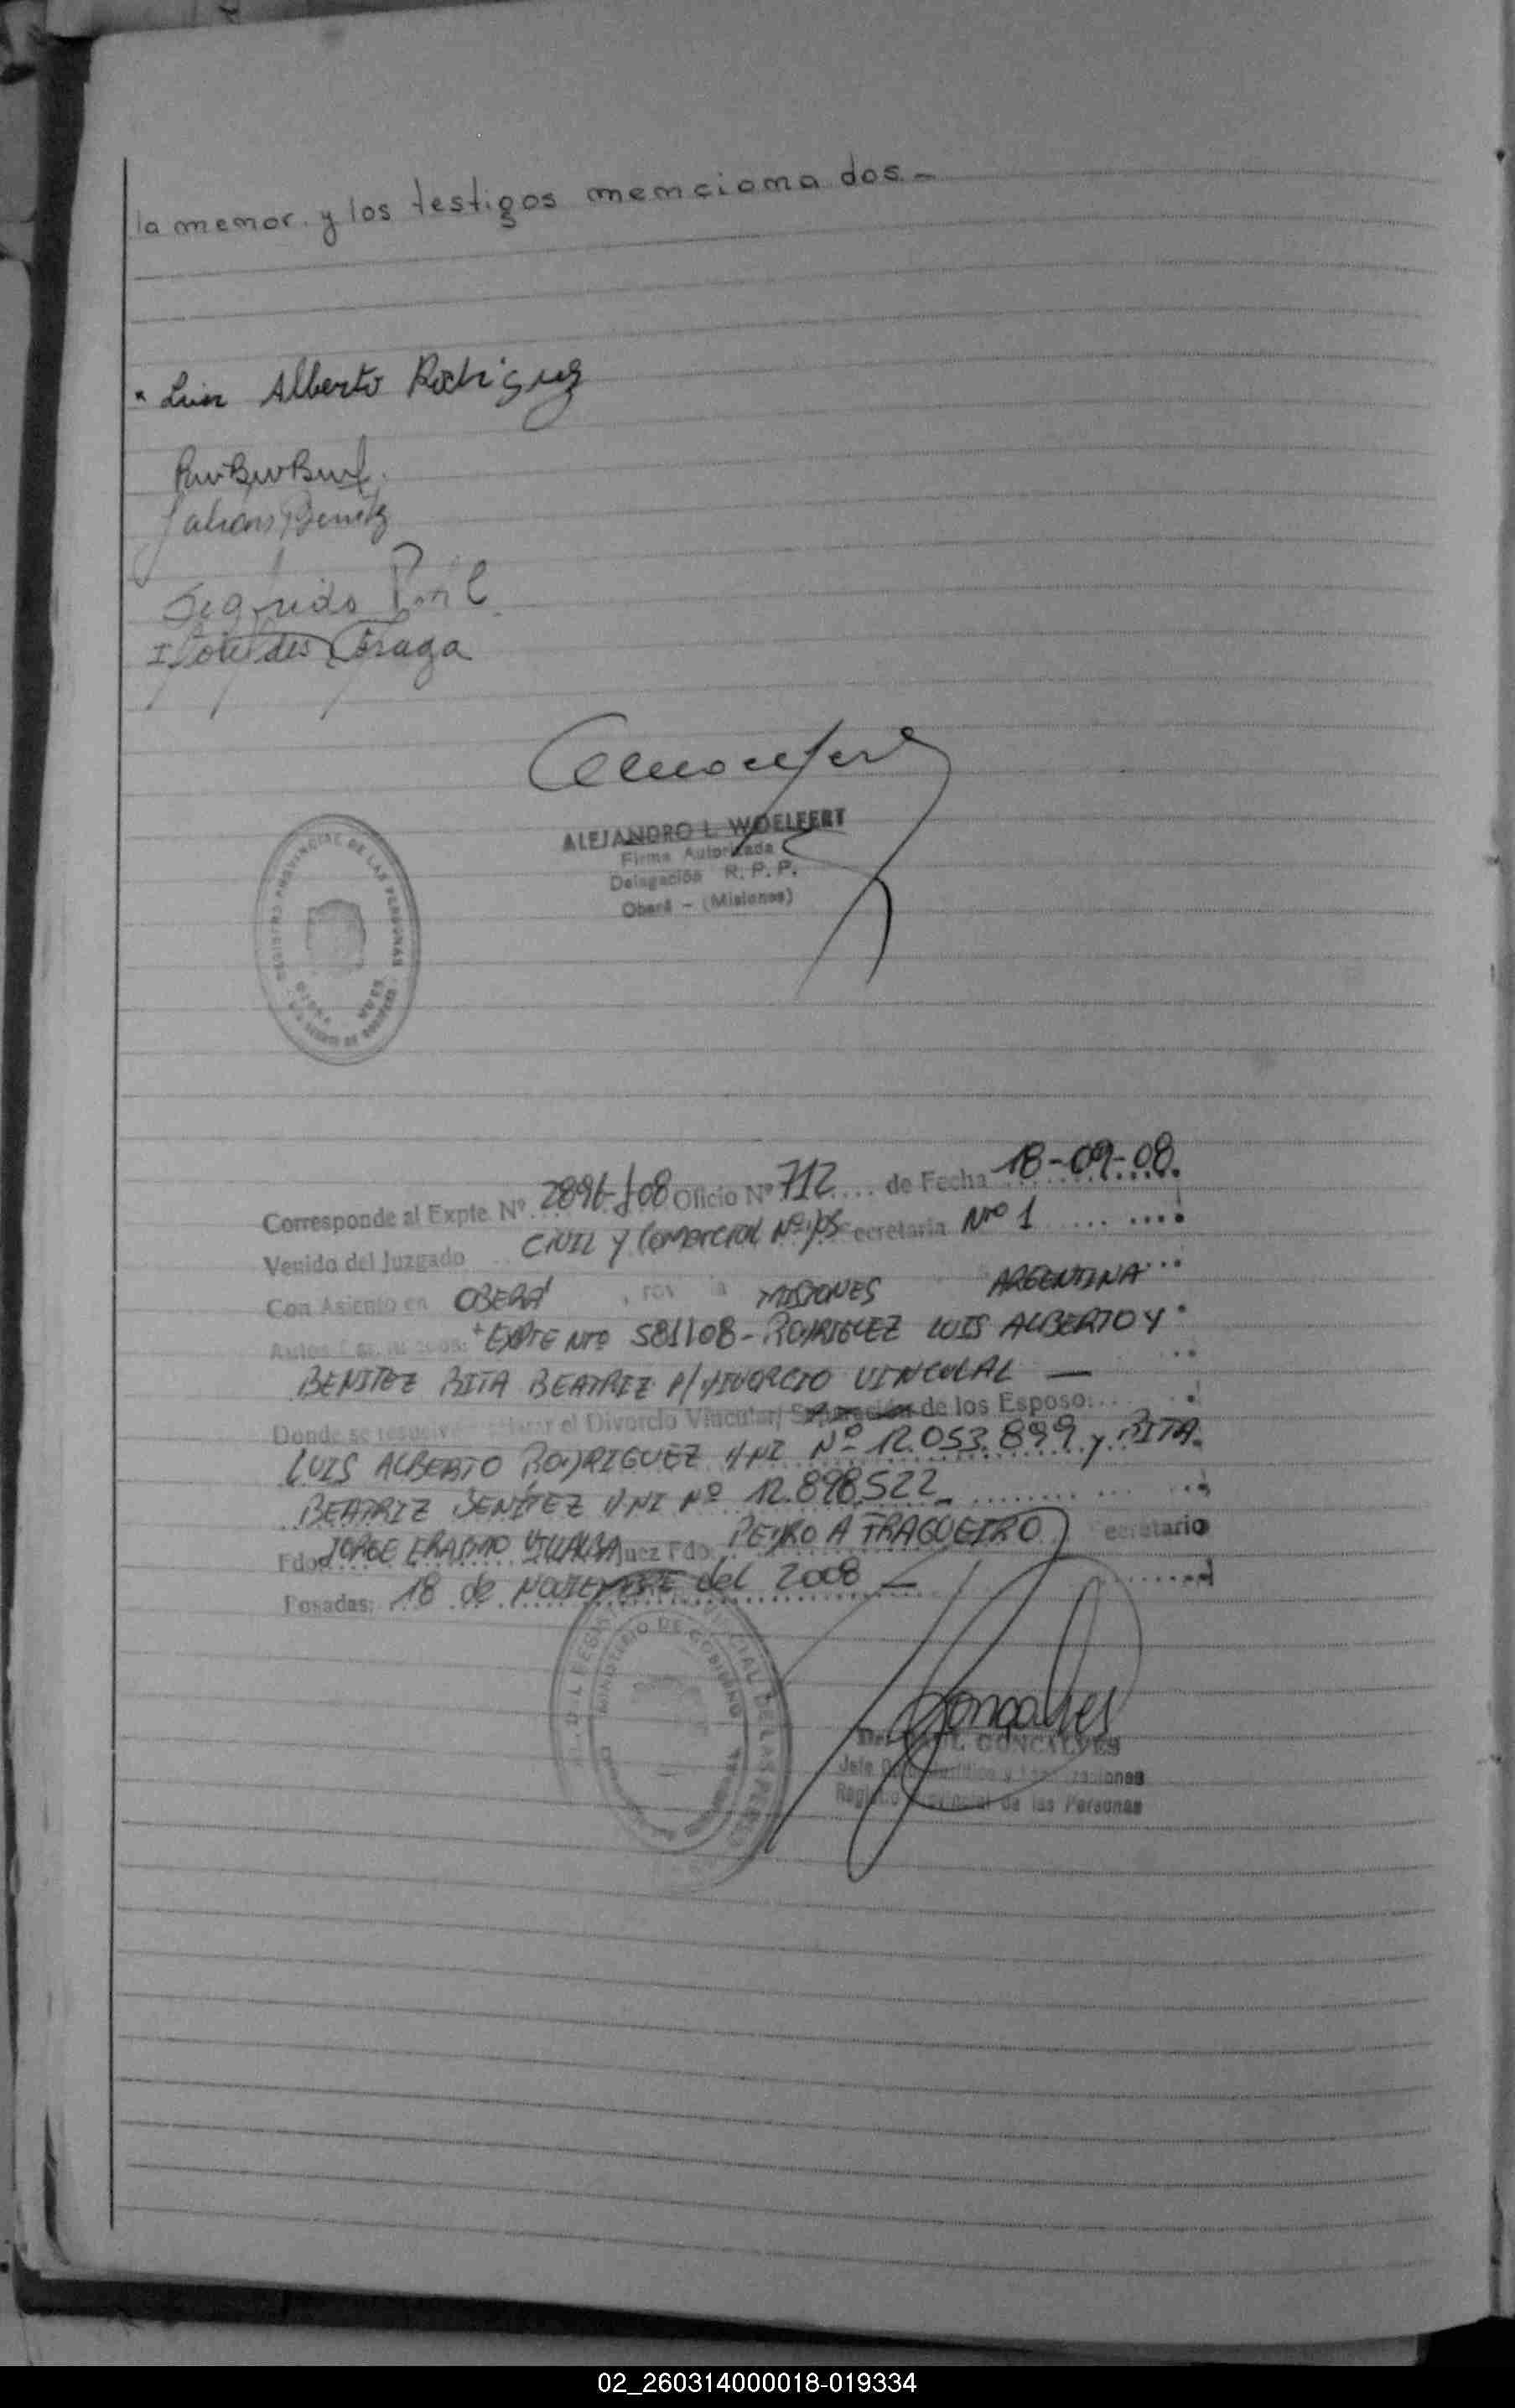 la menor y los testigos mencionados.-
Luis Alberto Rodriguez
Benitez
Segfrido
Fraga
ALEJANDRO L. WOELFERT
Firma Autorizada
Delegación R. P. P.
Oberá - (Misiones)
REGISTRO PROVINCIAL DE LAS PERSONAS
Corresponde al Expte. Nº 2896-J-08 Oficio Nº 712 de Fecha 18-09-08
Venido del Juzgado CIVIL Y COMERCIAL Nº 1 Secretaria Nro 1
Con Asiento en OBERÁ MISIONES ARGENTINA
Autos EXPTE Nro 581/08 - RODRIGUEZ LUIS ALBERTO Y
BENITEZ RITA BEATRIZ P/ DIVORCIO VINCULAR —
Donde se resuelve el Divorcio Vincular/ Separación de los Esposo:
LUIS ALBERTO RODRIGUEZ DNI Nº 12.053.899 y RITA
BEATRIZ BENÍTEZ DNI Nº 12.898.522
Fdo: JORGE ERASMO VILLALBA Juez Fdo. PEDRO A FRAGUEIRO Secretario
Posadas: 18 de NOVIEMBRE del 2008 —
MINISTERIO DE GOBIERNO
Goncalves
GONCALVES
Registro Provincial de las Personas
02_260314000018-019334